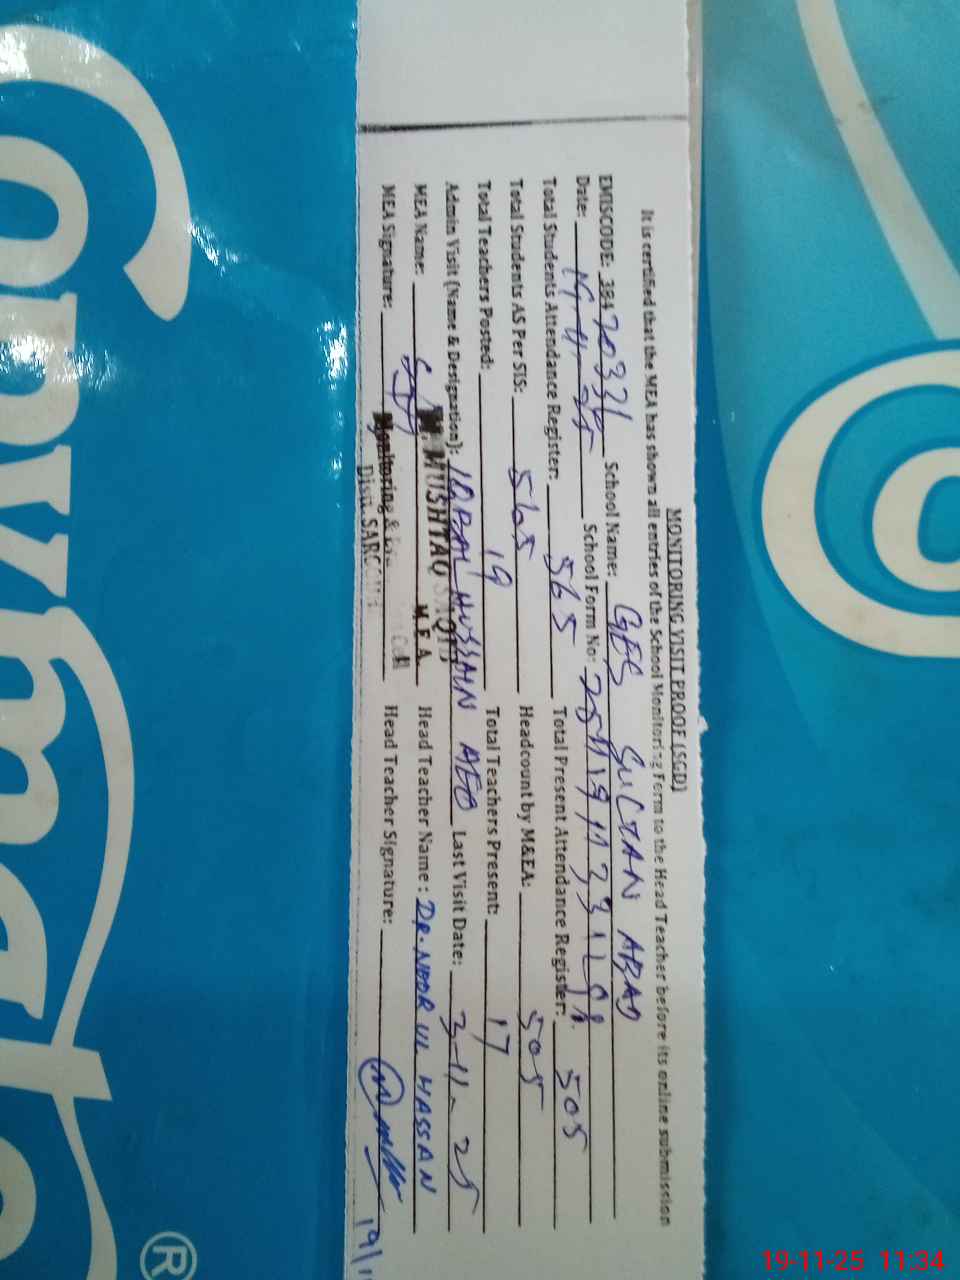 MONITORING VISIT PROOF (SGD)
It is certified that the MEA has shown all entries of the School Monitoring Form to the Head Teacher before its online submission
EMISCODE: 38470331 School Name: GES SULTAN ABAD
Date: 19-11-25 School Form No:
Total Students Attendance Register: 565 Total Present Attendance Register: 505
Total Students AS Per SIS: 565 Headcount by M&EA: 505
Total Teachers Posted: 19 Total Teachers Present: 17
Admin Visit (Name & Designation): IQBAL HUSSAIN AEO Last Visit Date: 3-11-25
MEA Name: M. MUSHTAQ M.E.A. Head Teacher Name: DR. NOOR UL HASSAN
MEA Signature: Monitoring & Cell Head Teacher Signature:
Distt. 
Copymate ®
19-11-25 11:34